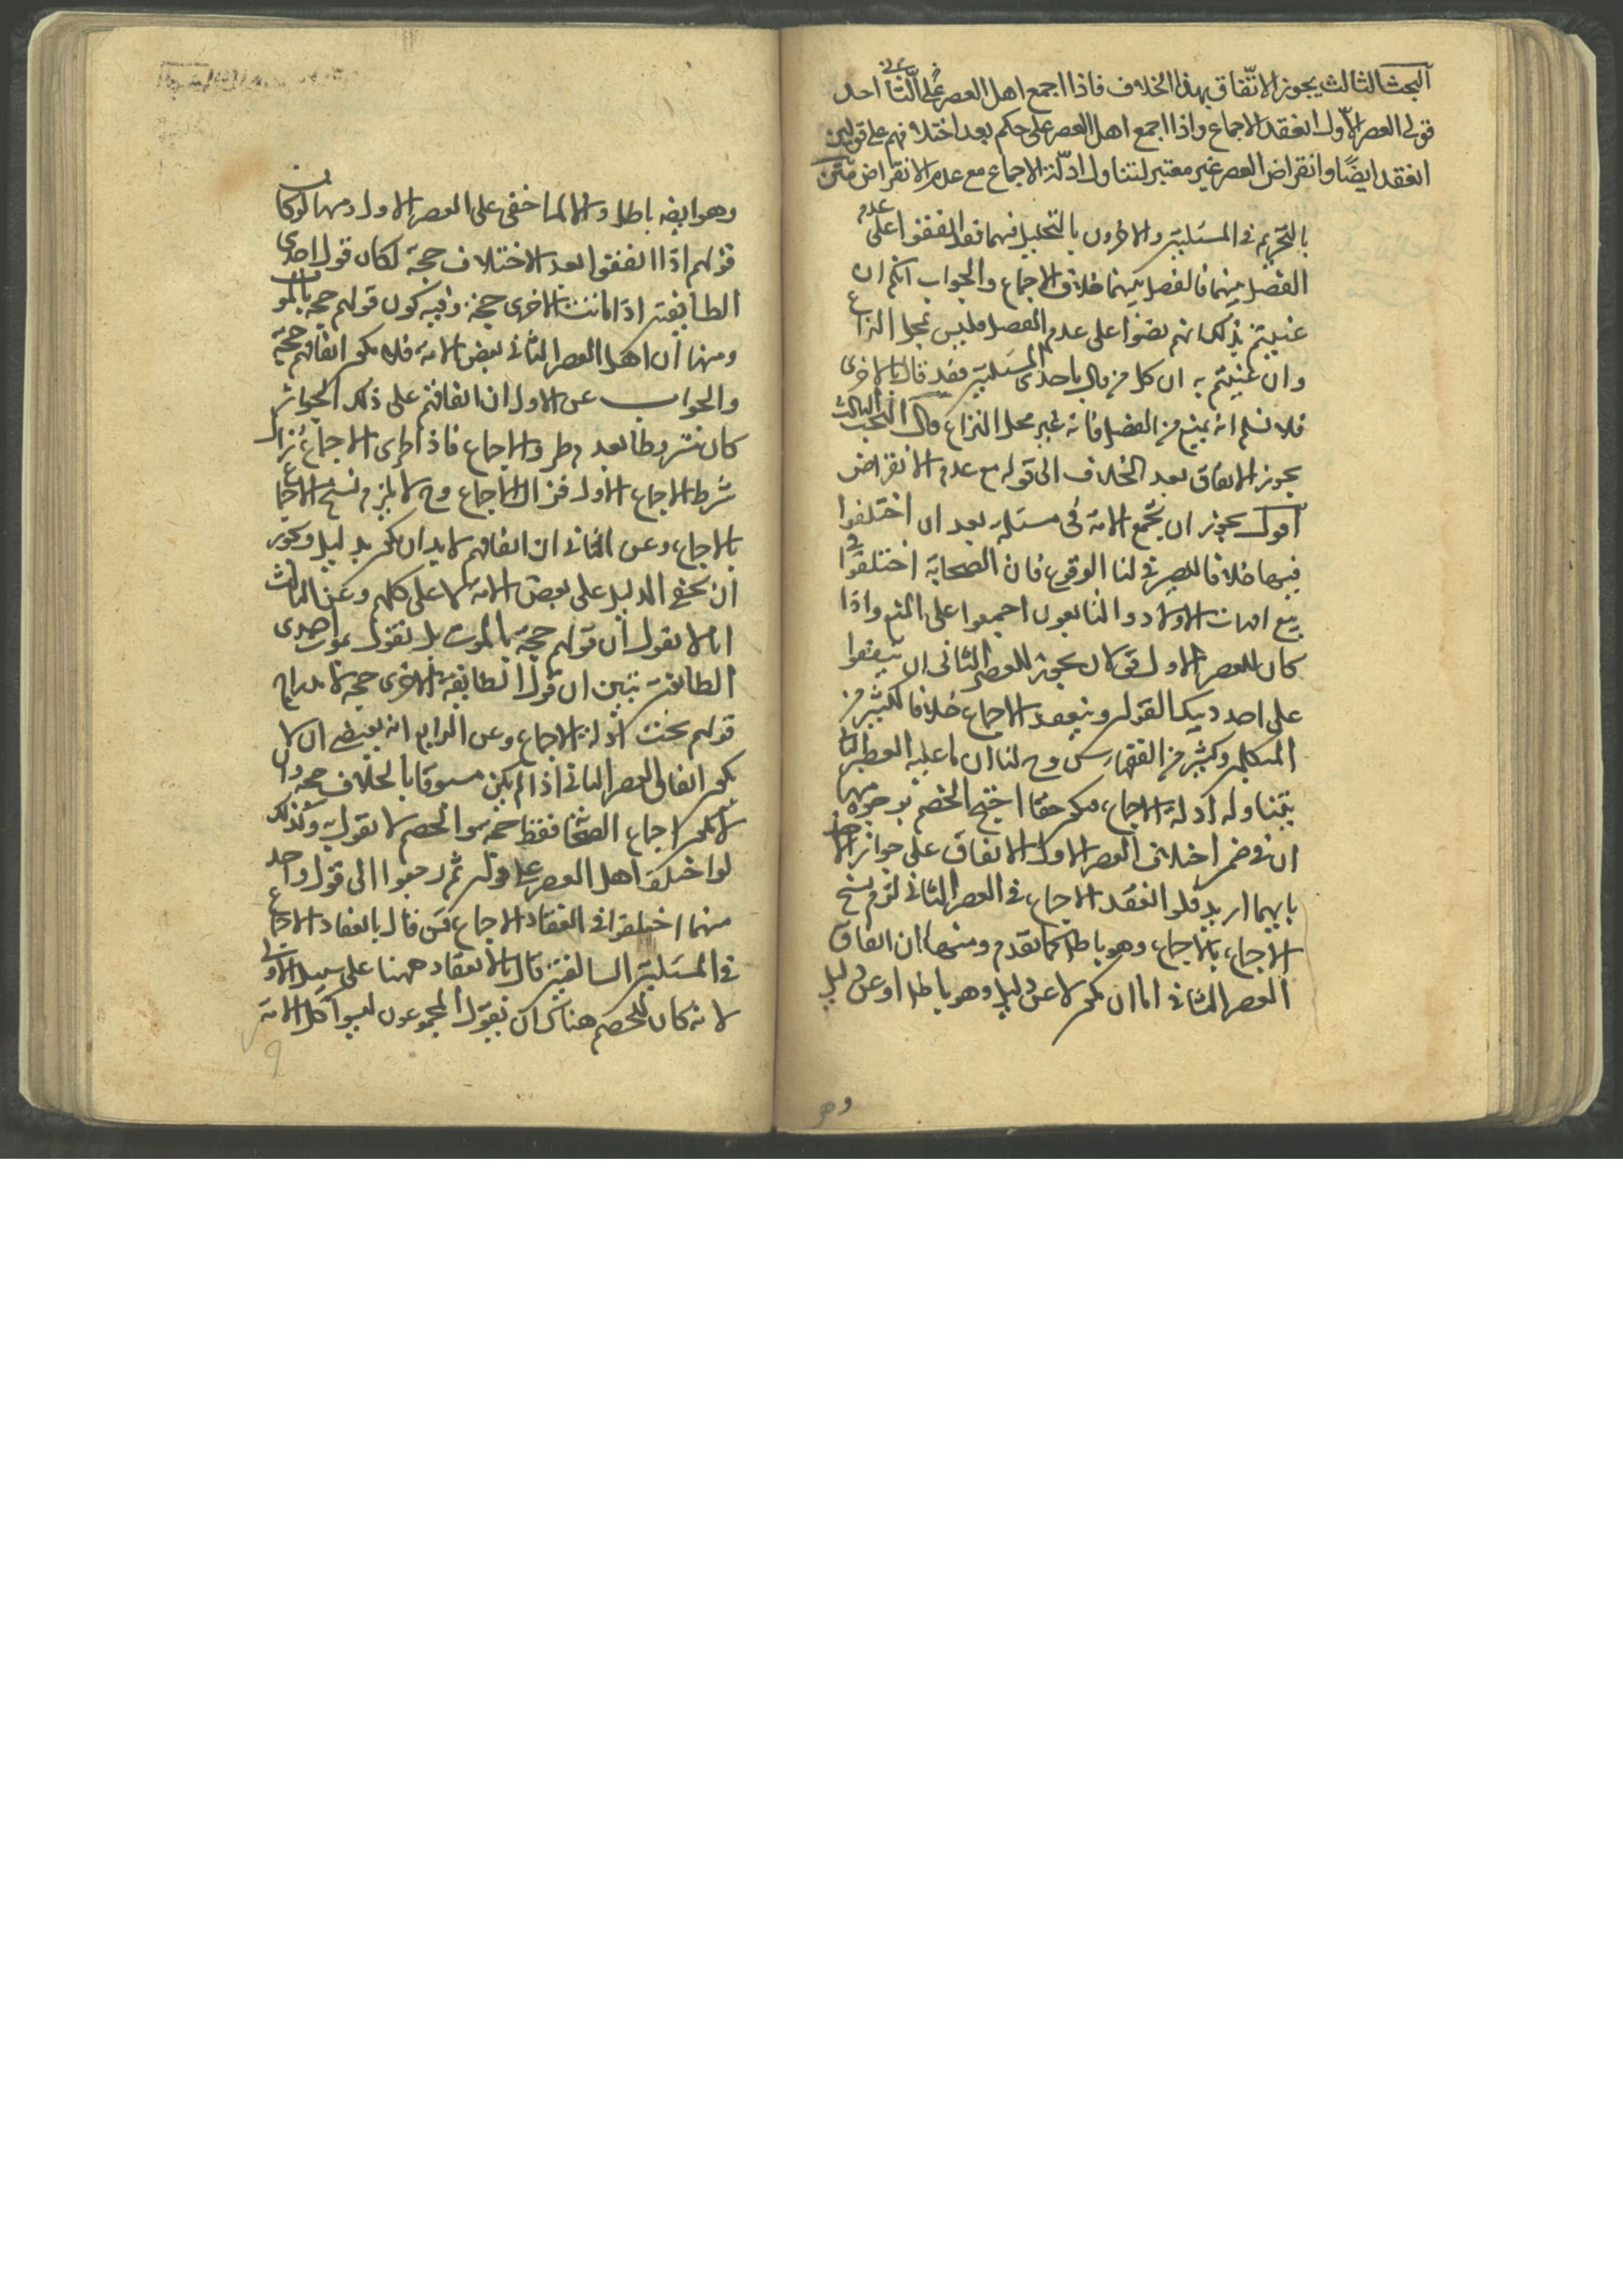 البحث الثالث يجوز الاتّفاق بهذا الخلاف فاذا اجمع اهل العصر الثاني على احد
قولى العصر الاوّل انعقد الاجماع واذا اجمع اهل العصر على حكم بعد اختلافهم على قولين
انعقد ايضًا وانقراض العصر غير معتبر لتناول ادلّة الاجماع مع عدم الانقراض متن
بالتحريم فى المسئلتين والاخرون بالتحليل فيهما فقد اتفقوا على عدم
الفصل بينهما فالفصل بينهما خلاف الاجماع والجواب انكم ان
عنيتم بذلك انهم نصّوا على عدم الفصل فليس محل النزاع
وان عنيتم به ان كل من قال باحدى المسئلتين فقد قال بالاخرى
فلا نسلم انه يمنع من الفصل فانه غير محل النزاع قال البحث الثالث
يجوز الاتفاق بعد الخلاف الى قوله مع عدم الانقراض
اقول يجوز ان تجمع الامة فى مسئلة بعد ان اختلفوا
فيها خلافا للصيرفى لنا الوقوع فان الصحابة اختلفوا فى
بيع امهات الاولاد والتابعون اجمعوا على المنع واذا
كان للعصر الاول قولان يجوز للعصر الثانى ان يتفقوا
على احد ذينك القولين وينعقد الاجماع خلافا لكثير من
المتكلمين وكثير من الفقهاء لنا ان ما عليه العصر الثانى
يتناوله ادلة الاجماع فيكون حقا احتج الخصم بوجوه منها
ان فى ضمن اختلاف العصر الاول الاتفاق على جواز الاخذ
بايهما اريد فلو انعقد الاجماع فى العصر الثانى لزم نسخ
الاجماع بالاجماع وهو باطل كما تقدم ومنها ان اتفاق
العصر الثانى اما ان يكون لا عن دليل وهو باطل او عن دليل
وهو
وهو ايضا باطل والا لما خفى على العصر الاول ومنها لو كان
قولهم اذا اتفقوا بعد الاختلاف حجة لكان قول احدى
الطايفتين اذا ماتت الاخرى حجة وفيه كون قولهم حجة بالموت
ومنها ان اهل العصر الثانى بعض الامة فلا يكون اتفاقهم حجة
والجواب عن الاول ان اتفاقهم على ذلك الجواز
كان مشروطا بعدم طرو الاجماع فاذا طرى الاجماع زال
شرط الاجماع الاول فزال الاجماع وح لا يلزم نسخ الاجماع
بالاجماع وعن الثانى ان اتفاقهم لا بد ان يكون بدليل ويجوز
ان يخفى الدليل على بعض الامة لا على كلهم وعن الثالث
انا لا نقول ان قولهم حجة بالموت بل نقول بموت احدى
الطايفتين تبين ان قول الطايفة الاخرى حجة لاندراج
قولهم تحت ادلة الاجماع وعن الرابع انه يقتضى ان لا
يكون اتفاق العصر الثانى اذا لم يكن مسبوقا بالخلاف حجة وان
لا يكون اجماع الصحابة فقط حجة والخصم لا يقول به وكذلك
لو اختلف اهل العصر على قولين ثم رجعوا الى قول واحد
منهما اختلفوا فى انعقاد الاجماع فمن قال بانعقاد الاجماع
فى المسئلتين السالفتين قال بالانعقاد ههنا على سبيل الاولى
لانه كان للخصم هناك ان يقول المجمعون ليسوا كل الامة